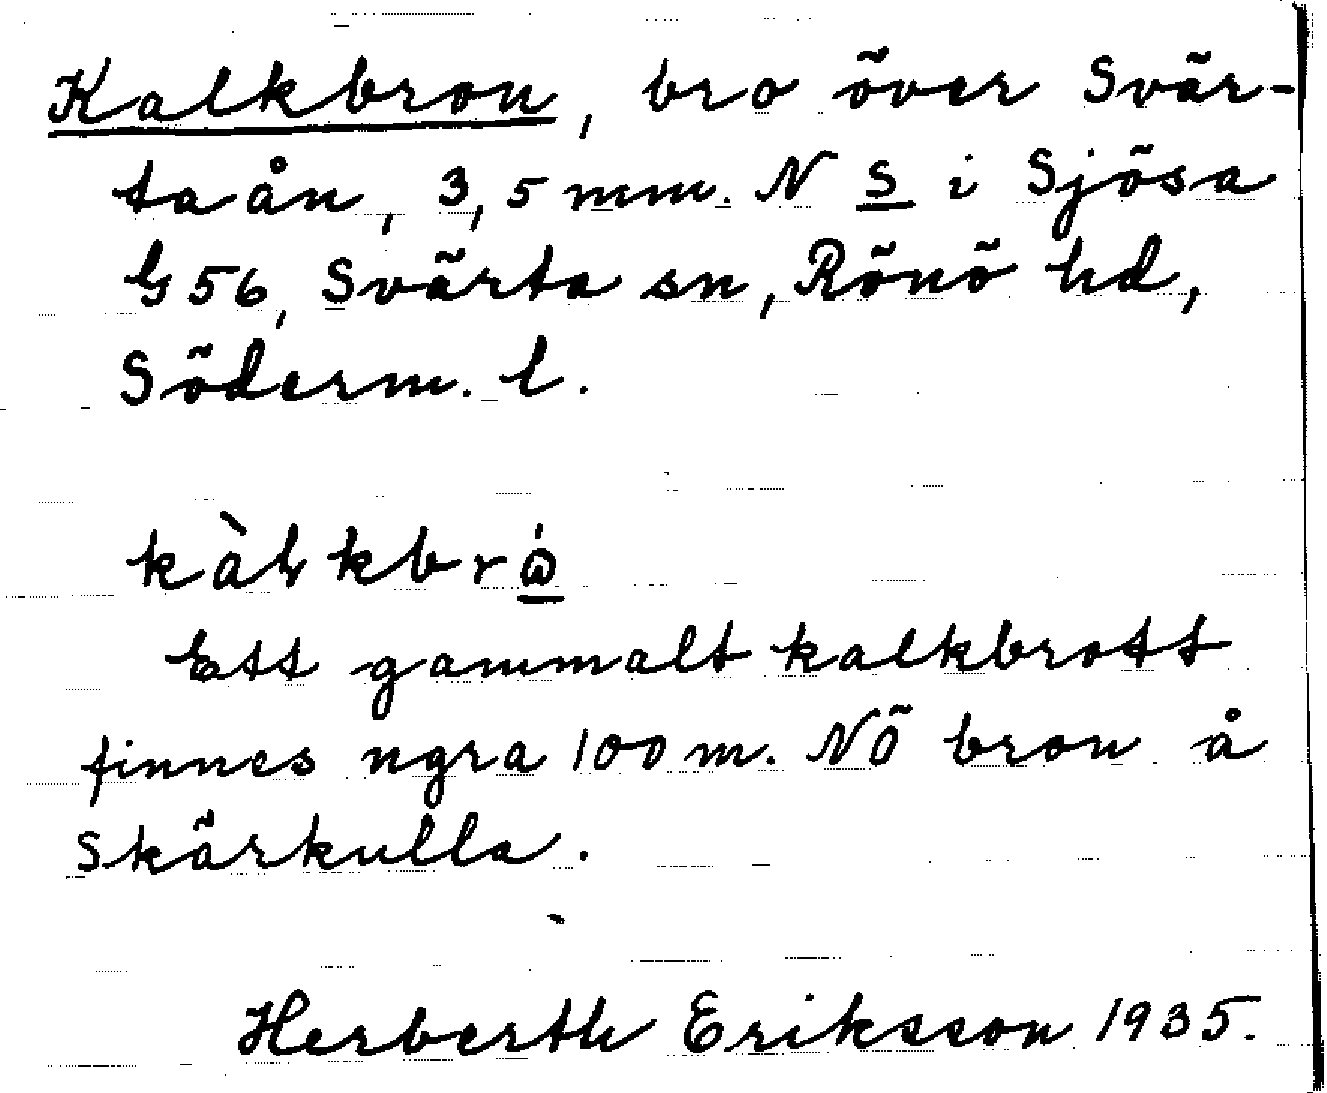 Kalkbron, bro över Svär-
taån, 3,5 mm. N S i Sjösa
G 56, Svärta sn, Rönö hd,
Söderm. l.
kàɭkbrώ̲
Ett gammalt kalkbrott
finnes ngra 100 m. NÖ bron å
Skärkulla.
Herberth Eriksson 1935.